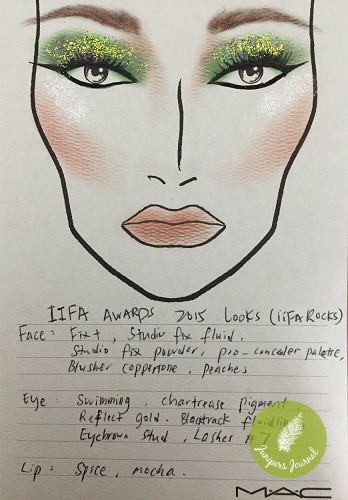 IIFA AWARDS 2015 Looks (iiFA Rocks)
Face: Fix+, Studio fix fluid.
Studio fix powder, pro-concealer palette,
Blusher coppertone, peaches
Eye: Swimming, chartreuse pigment
Reflect gold. Blacktrack fluidline
Eyebrown Stud, Lashes # 7
Lip: Spice, mocha.
Junipers Journal
MAC